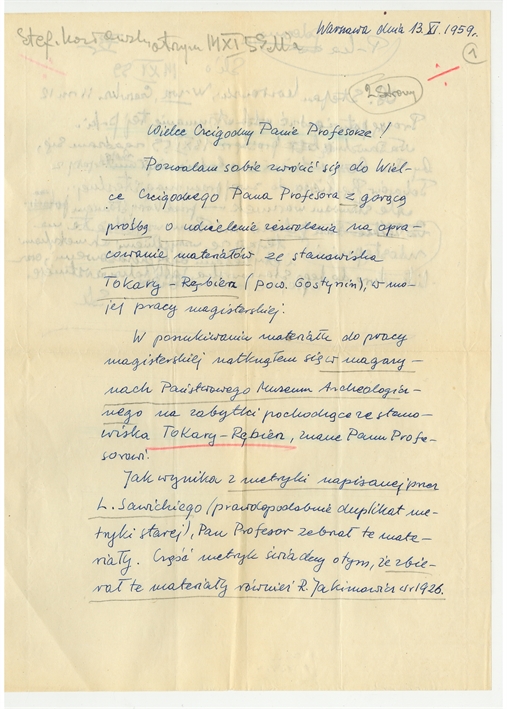 Warszawa dnia 13.XI.1959r.
Stef. Kozłowski otrzym 14 XI 59
1
2 strony
Wielce Czcigodny Panie Profesorze!
Pozwalam sobie zwrócić się do Wiel-
ce Czcigodnego Pana Profesora z gorącą
prośbą o udzielenie zezwolenia na opra-
cowanie materiałów ze stanowiska
Tokary-Rąbież (pow. Gostynin), w mo-
jej pracy magisterskiej.
W poszukiwaniu materiału do pracy
magisterskiej natknąłem się w magazy-
nach Państwowego Muzeum Archeologicz-
nego na zabytki pochodzące ze stano-
wiska Tokary-Rąbież, znane Panu Profe-
sorowi.
Jak wynika z metryki napisanej przez
L. Sawickiego (prawdopodobnie duplikat me-
tryki starej), Pan Profesor zebrał te mate-
riały. Część metryk świadczy o tym, że zbie-
rał te materiały również R. Jakimowicz w r 1926.